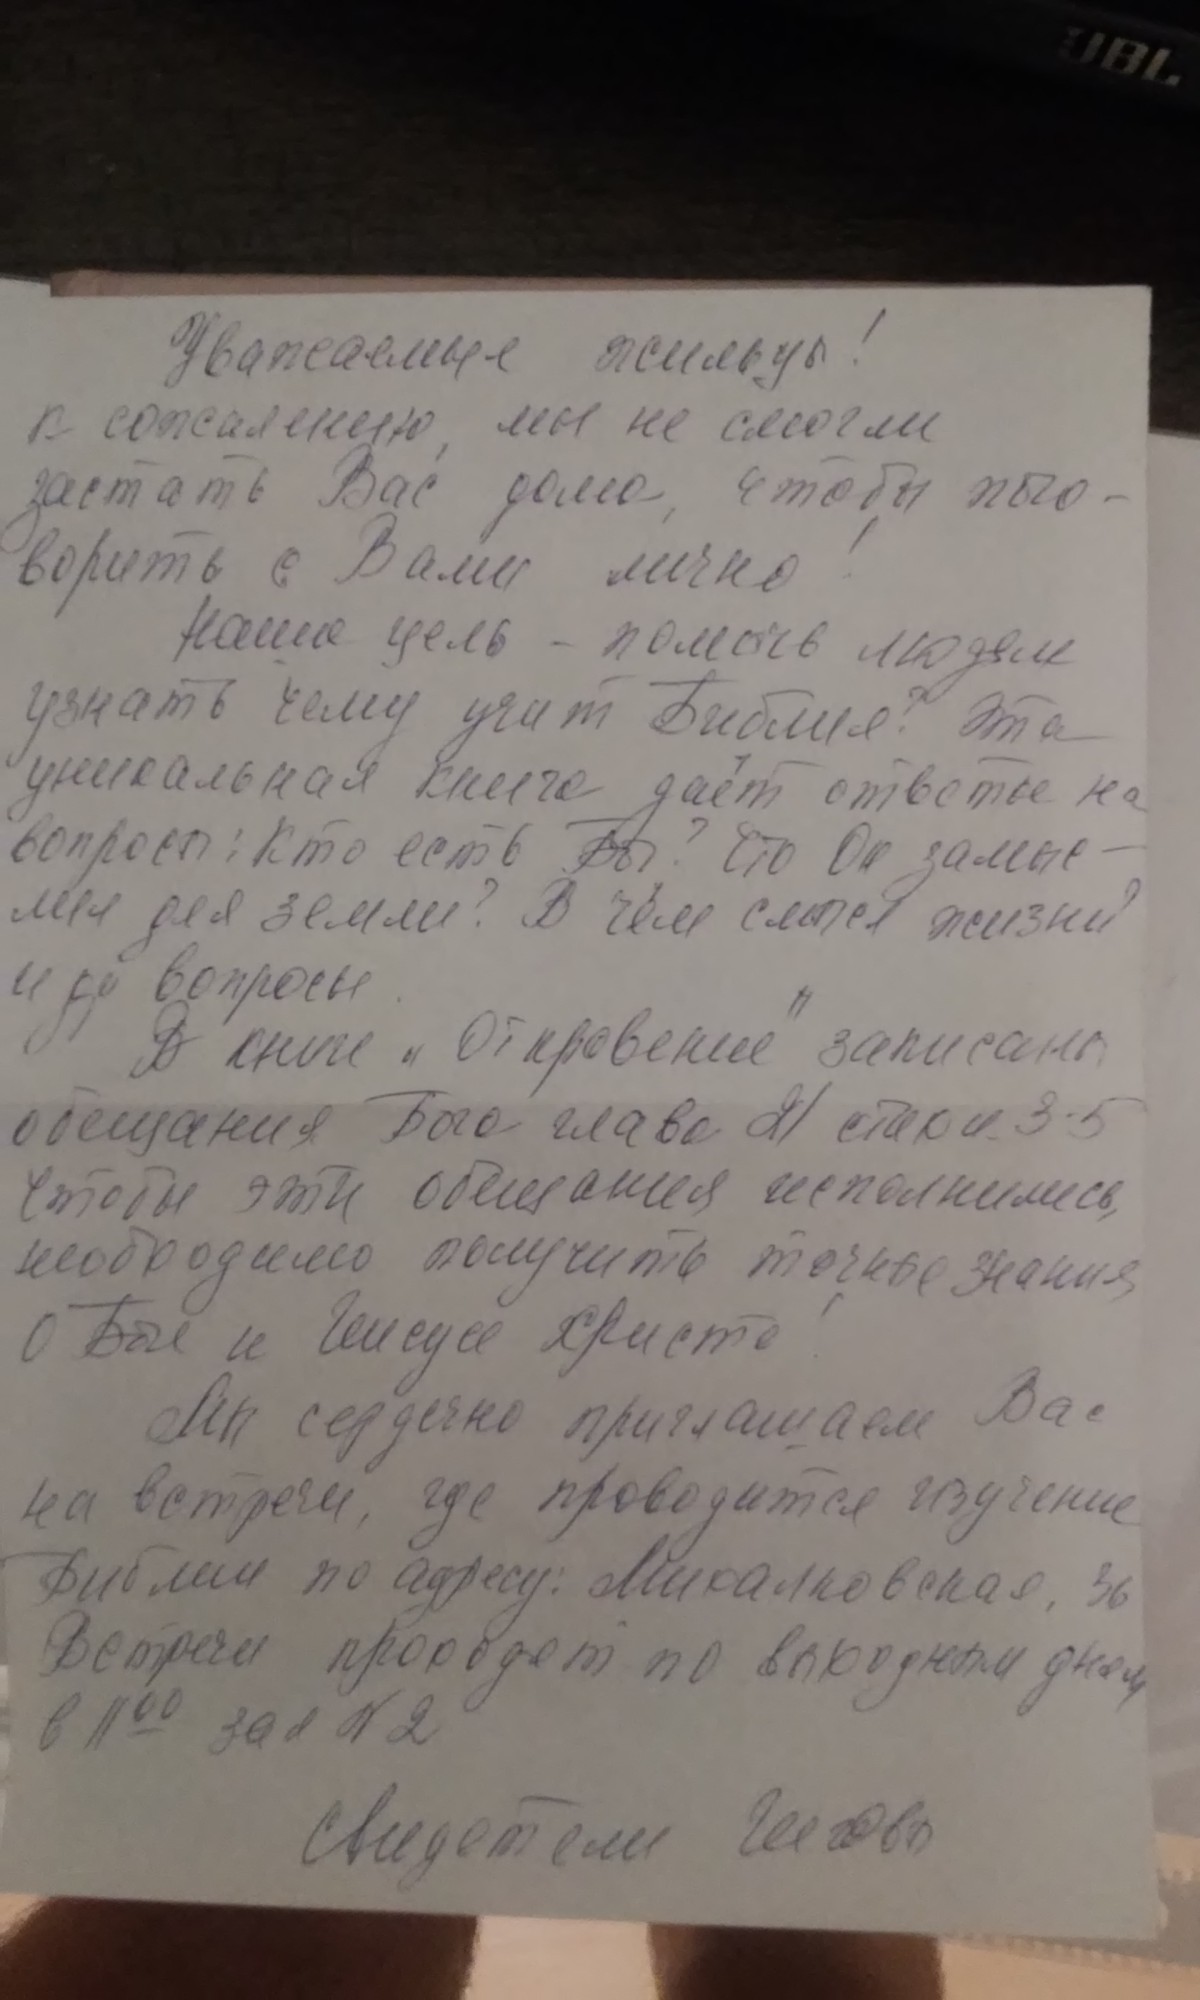 JBL
Уважаемые жильцы!
к сожалению, мы не смогли
застать Вас дома, чтобы пого-
ворить с Вами лично!
Наша цель - помочь людям
узнать чему учит Библия? Эта
уникальная книга даёт ответы на
вопросы: Кто есть Бог? Что Он замыс-
лил для земли? В чём смысл жизни?
и др вопросы.
В книге „Откровение" записаны
обещания Бога глава 21 стихи 3-5
Чтобы эти обещания исполнились,
необходимо получить точные знания
о Боге и Иисусе Христе!
Мы сердечно приглашаем Вас
на встречи, где проводится изучение
Библии по адресу: Михалковская, 36
Встречи проходят по выходным дням
в 11 00 зал N 2
Свидетели Иеговы